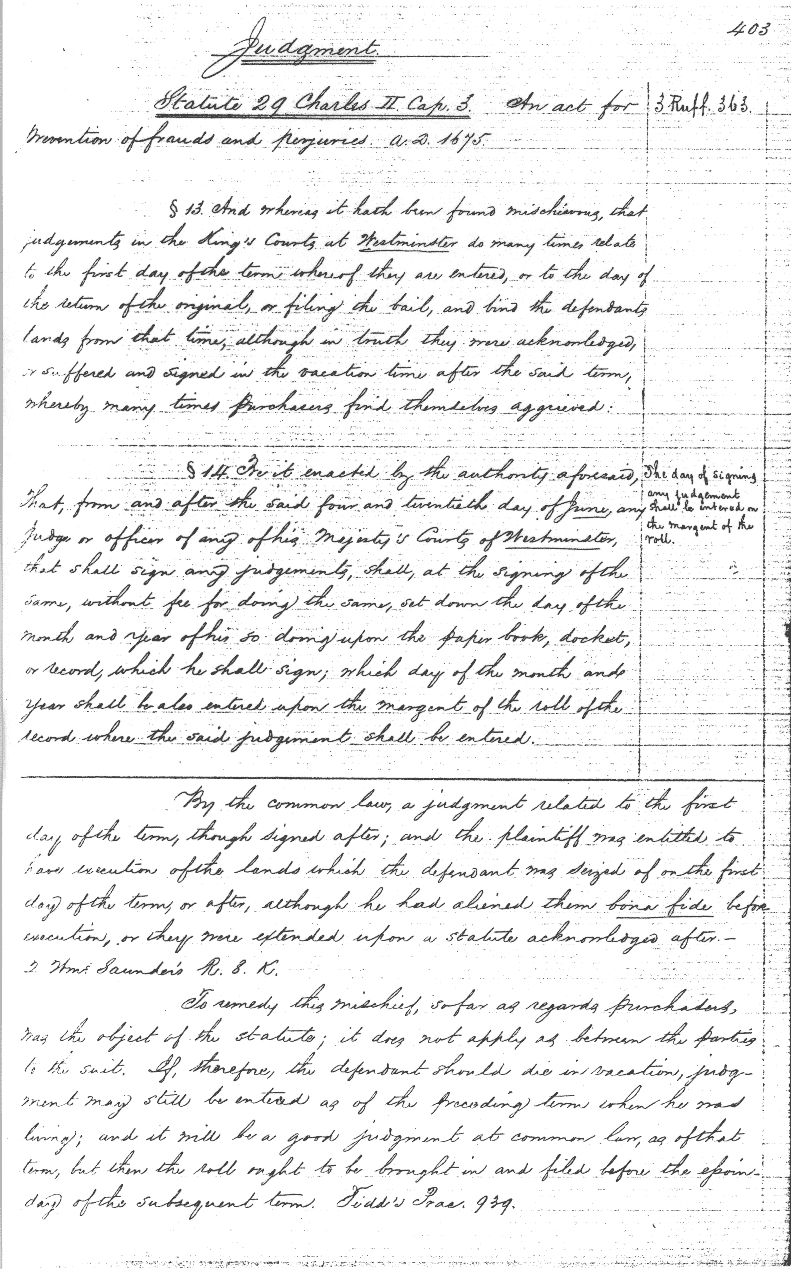 403
Judgment.
Statute 29 Charles II. Cap. 3. An act for
3 Ruff. 363.
Prevention of frauds and perjuries. A.D. 1675.
§ 13. And whereas it hath been found mischievous, that
judgements in the King's Courts at Westminster do many times relate
to the first day of the term whereof they are entered, or to the day of
the return of the original, or filing the bail, and bind the defendants
lands from that time, although in truth they were acknowledged,
or suffered and signed in the vacation time after the said term,
whereby many times purchasers find themselves aggrieved:
§ 14. Be it enacted by the authority aforesaid,
That, from and after the said four and twentieth day of June, any
Judge or officer of any of his Majesty's Courts of Westminster,
that shall sign any judgements, shall, at the signing of the
same, without fee for doing the same, set down the day of the
month and year of his so doing upon the paper book, docket,
or record, which he shall sign; which day of the month and
year shall be also entered upon the margent of the roll of the
record where the said judgement shall be entered.
The day of signing
any judgement
shall be entered on
the margent of the
roll.
By the common law, a judgment related to the first
day of the term, though signed after; and the plaintiff was entitled to
have execution of the lands which the defendant was seized of on the first
day of the term, or after, although he had aliened them bona fide before
execution, or they were extended upon a statute acknowledged after.—
2 Wms. Saunders R. 8. K.
To remedy this mischief, so far as regards purchasers,
was the object of the statute; it does not apply as between the parties
to the suit. If, therefore, the defendant should die in vacation, judg-
ment may still be entered as of the preceeding term when he was
living; and it will be a good judgment at common law, as of that
term, but then the roll ought to be brought in and filed before the essoin-
day of the subsequent term. Tidd's Prac. 939.